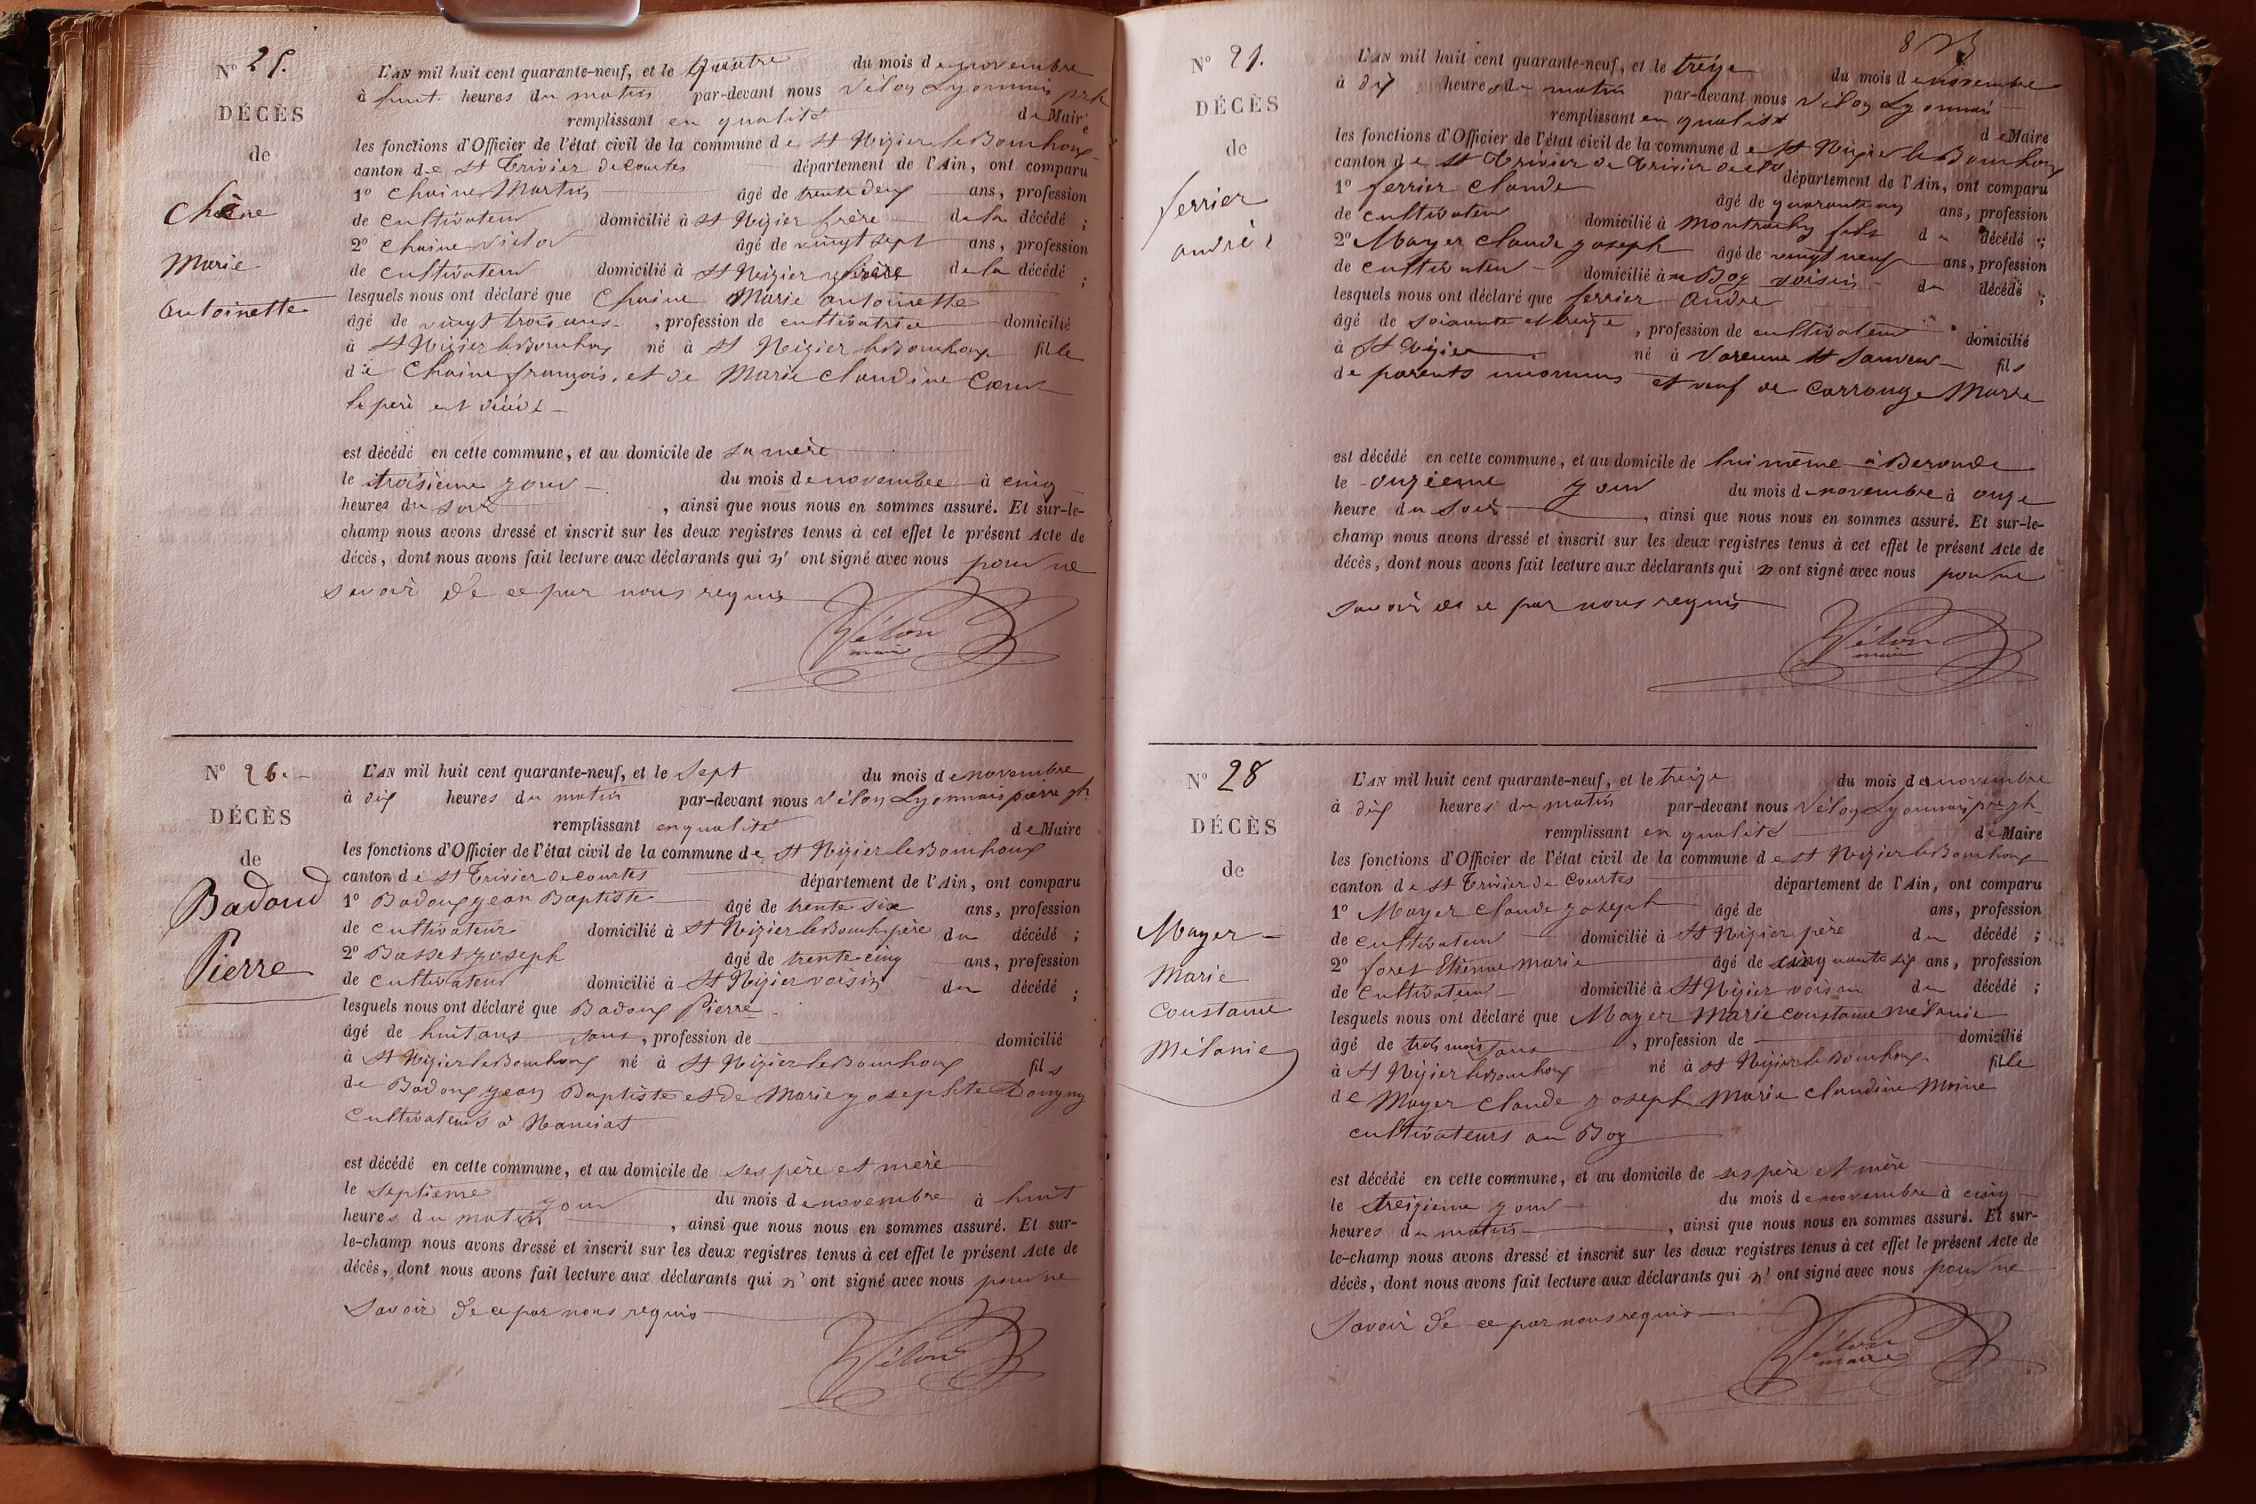 N° 25.
DÉCÈS
de
Chêne
Marie
antoinette
L'AN mil huit cent quarante-neuf, et le quatre du mois de novembre
à huit heures du matin par-devant nous Vélon Lyonnais
remplissant en qualité de Maire
les fonctions d'Officier de l'état civil de la commune de St Nizier le Bouchoux
canton de St Trivier de Courtes département de l'Ain, ont comparu
1° Chaine Martin âgé de trente deux ans, profession
de cultivateur domicilié à St Nizier frère de la décédé ;
2° Chaine Victor âgé de vingt sept ans, profession
de cultivateur domicilié à St Nizier frère de la décédé ;
lesquels nous ont déclaré que Chaine Marie antoinette
âgé de vingt trois ans, profession de cultivatrice domicilié
à St Nizier le Bouchoux né à St Nizier le Bouchoux fille
de Chaine françois, et de Marie Claudine Coeur
le père est décédé
est décédé en cette commune, et au domicile de sa mère
le troisième jour du mois de novembre à cinq
heures du soir, ainsi que nous nous en sommes assuré. Et sur-le-
champ nous avons dressé et inscrit sur les deux registres tenus à cet effet le présent Acte de
décès, dont nous avons fait lecture aux déclarants qui n'ont signé avec nous pour ne
savoir de ce par nous requis
Vélon
maire
N° 26.
DÉCÈS
de
Badoud
Pierre
L'AN mil huit cent quarante-neuf, et le sept du mois de novembre
à dix heures du matin par-devant nous Vélon Lyonnais pierre jh
remplissant en qualité de Maire
les fonctions d'Officier de l'état civil de la commune de St Nizier le Bouchoux
canton de St Trivier de courtes département de l'Ain, ont comparu
1° Badoux jean Baptiste âgé de trente six ans, profession
de cultivateur domicilié à St Nizier le Bouch. père du décédé ;
2° Basset joseph âgé de trente cinq ans, profession
de cultivateur domicilié à St Nizier voisin du décédé ;
lesquels nous ont déclaré que Badoux Pierre
âgé de huit ans sans, profession de domicilié
à St Nizier le Bouchoux né à St Nizier le Bouchoux fils
de Badoux jean Baptiste et de Marie josephte
cultivateurs à
est décédé en cette commune, et au domicile de ses père et mère
le septieme jour du mois de novembre à huit
heures du matin, ainsi que nous nous en sommes assuré. Et sur-
le-champ nous avons dressé et inscrit sur les deux registres tenus à cet effet le présent Acte de
décès, dont nous avons fait lecture aux déclarants qui n'ont signé avec nous pour ne
savoir de ce par nous requis
Vélon
8
N° 27.
DÉCÈS
de
ferrier
andré
L'AN mil huit cent quarante-neuf, et le treize du mois de novembre
à dix heures du matin par-devant nous Vélon Lyonnais
remplissant en qualité de Maire
les fonctions d'Officier de l'état civil de la commune de St Nizier le Bouchoux
canton de St Trivier de Trivier de département de l'Ain, ont comparu
1° ferrier claude âgé de quarante ans, profession
de cultivateur domicilié à fils du décédé ;
2° Mayer claude joseph âgé de vingt neuf ans, profession
de cultivateur domicilié au Boz voisin du décédé ;
lesquels nous ont déclaré que ferrier andre
âgé de soixante et treize, profession de cultivateur domicilié
à St Nizier né à Varenne St Sauveur fils
de parents inconnus et veuf de Carrouge Marie
est décédé en cette commune, et au domicile de lui même à
le onzieme jour du mois de novembre à onze
heure du soir, ainsi que nous nous en sommes assuré. Et sur-le-
champ nous avons dressé et inscrit sur les deux registres tenus à cet effet le présent Acte de
décès, dont nous avons fait lecture aux déclarants qui n ont signé avec nous pour ne
savoir de ce par nous requis
Vélon
maire
N° 28
DÉCÈS
de
Mayer
Marie
Constance
Mélanie
L'AN mil huit cent quarante-neuf, et le treize du mois de novembre
à dix heures du matin par-devant nous Vélon Lyonnais pre jh
remplissant en qualité de Maire
les fonctions d'Officier de l'état civil de la commune de St Nizier le Bouchoux
canton de St Trivier de Courtes département de l'Ain, ont comparu
1° Mayer claude joseph âgé de ans, profession
de cultivateur domicilié à St Nizier père du décédé ;
2° foret Etienne marie âgé de cinquante six ans, profession
de cultivateur domicilié à St Nizier voisin du décédé ;
lesquels nous ont déclaré que Mayer Marie constance mélanie
âgé de trois mois sans, profession de domicilié
à St Nizier le Bouchoux né à St Nizier le Bouchoux fille
de Mayer claude joseph Marie claudine Moine
cultivateurs au Boz
est décédé en cette commune, et au domicile de ses père et mère
le treizieme jour du mois de novembre à cinq
heures du matin, ainsi que nous nous en sommes assuré. Et sur-
le-champ nous avons dressé et inscrit sur les deux registres tenus à cet effet le présent Acte de
décès, dont nous avons fait lecture aux déclarants qui n'ont signé avec nous pour ne
savoir de ce par nous requis
Vélon
maire